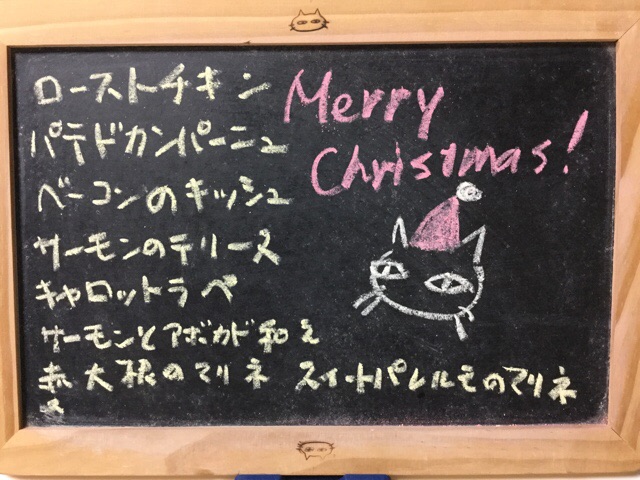 ローストチキン
パテドカンパーニュ
ベーコンのキッシュ
サーモンのテリーヌ
キャロットラペ
サーモンとアボカド和え
赤大根のマリネ スイートパレルモのマリネ
Merry
Christmas!